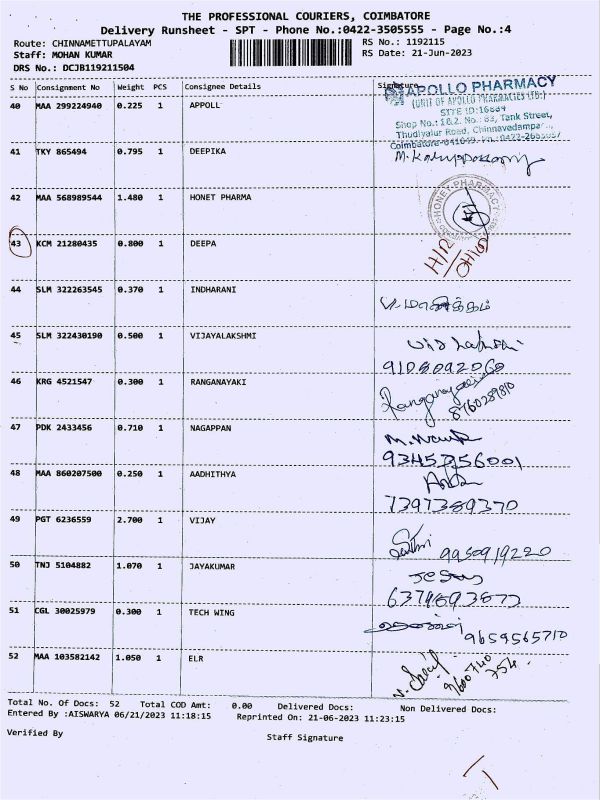 THE PROFESSIONAL COURIERS, COIMBATORE
Delivery Runsheet - SPT - Phone No.:0422-3505555 - Page No.:4
Route: CHINNAMETTUPALAYAM RS No.: 1192115
Staff: MOHAN KUMAR RS Date: 21-Jun-2023
DRS No.: DCJB119211504
S No Consignment No Weight PCS Consignee Details Signature
40 MAA 299224940 0.225 1 APPOLL
APOLLO PHARMACY
(UNIT OF APOLLO PHARMACIES LTD.)
SITE ID:16884
Shop No.: 1&2, No.: 83, Tank Street,
Thudiyalur Road, Chinnavedampa
41 TKY 865494 0.795 1 DEEPIKA
42 MAA 568989544 1.480 1 HONET PHARMA
HONET PHARMACY
43 KCM 21280435 0.800 1 DEEPA
44 SLM 322263545 0.370 1 INDHARANI
45 SLM 322430190 0.500 1 VIJAYALAKSHMI
46 KRG 4521547 0.300 1 RANGANAYAKI
8760289810
47 PDK 2433456 0.710 1 NAGAPPAN
48 MAA 860207500 0.250 1 AADHITHYA
7397389370
49 PGT 6236559 2.700 1 VIJAY
9950919220
50 TNJ 5104882 1.070 1 JAYAKUMAR
51 CGL 30025979 0.300 1 TECH WING
9659565710
52 MAA 103582142 1.050 1 ELR
9600740
754
Total No. Of Docs: 52 Total COD Amt: 0.00 Delivered Docs: Non Delivered Docs:
Entered By :AISWARYA 06/21/2023 11:18:15 Reprinted On: 21-06-2023 11:23:15
Verified By Staff Signature